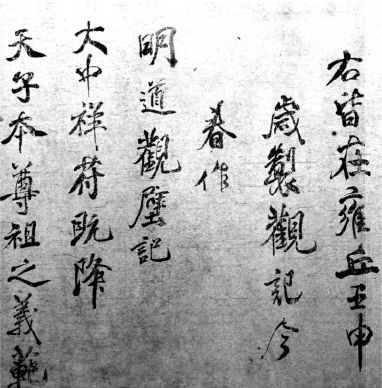 右皆在雍丘壬申
歲製觀記今
春作
明道觀壁記
大中祥符既降
天子本尊祖之義範